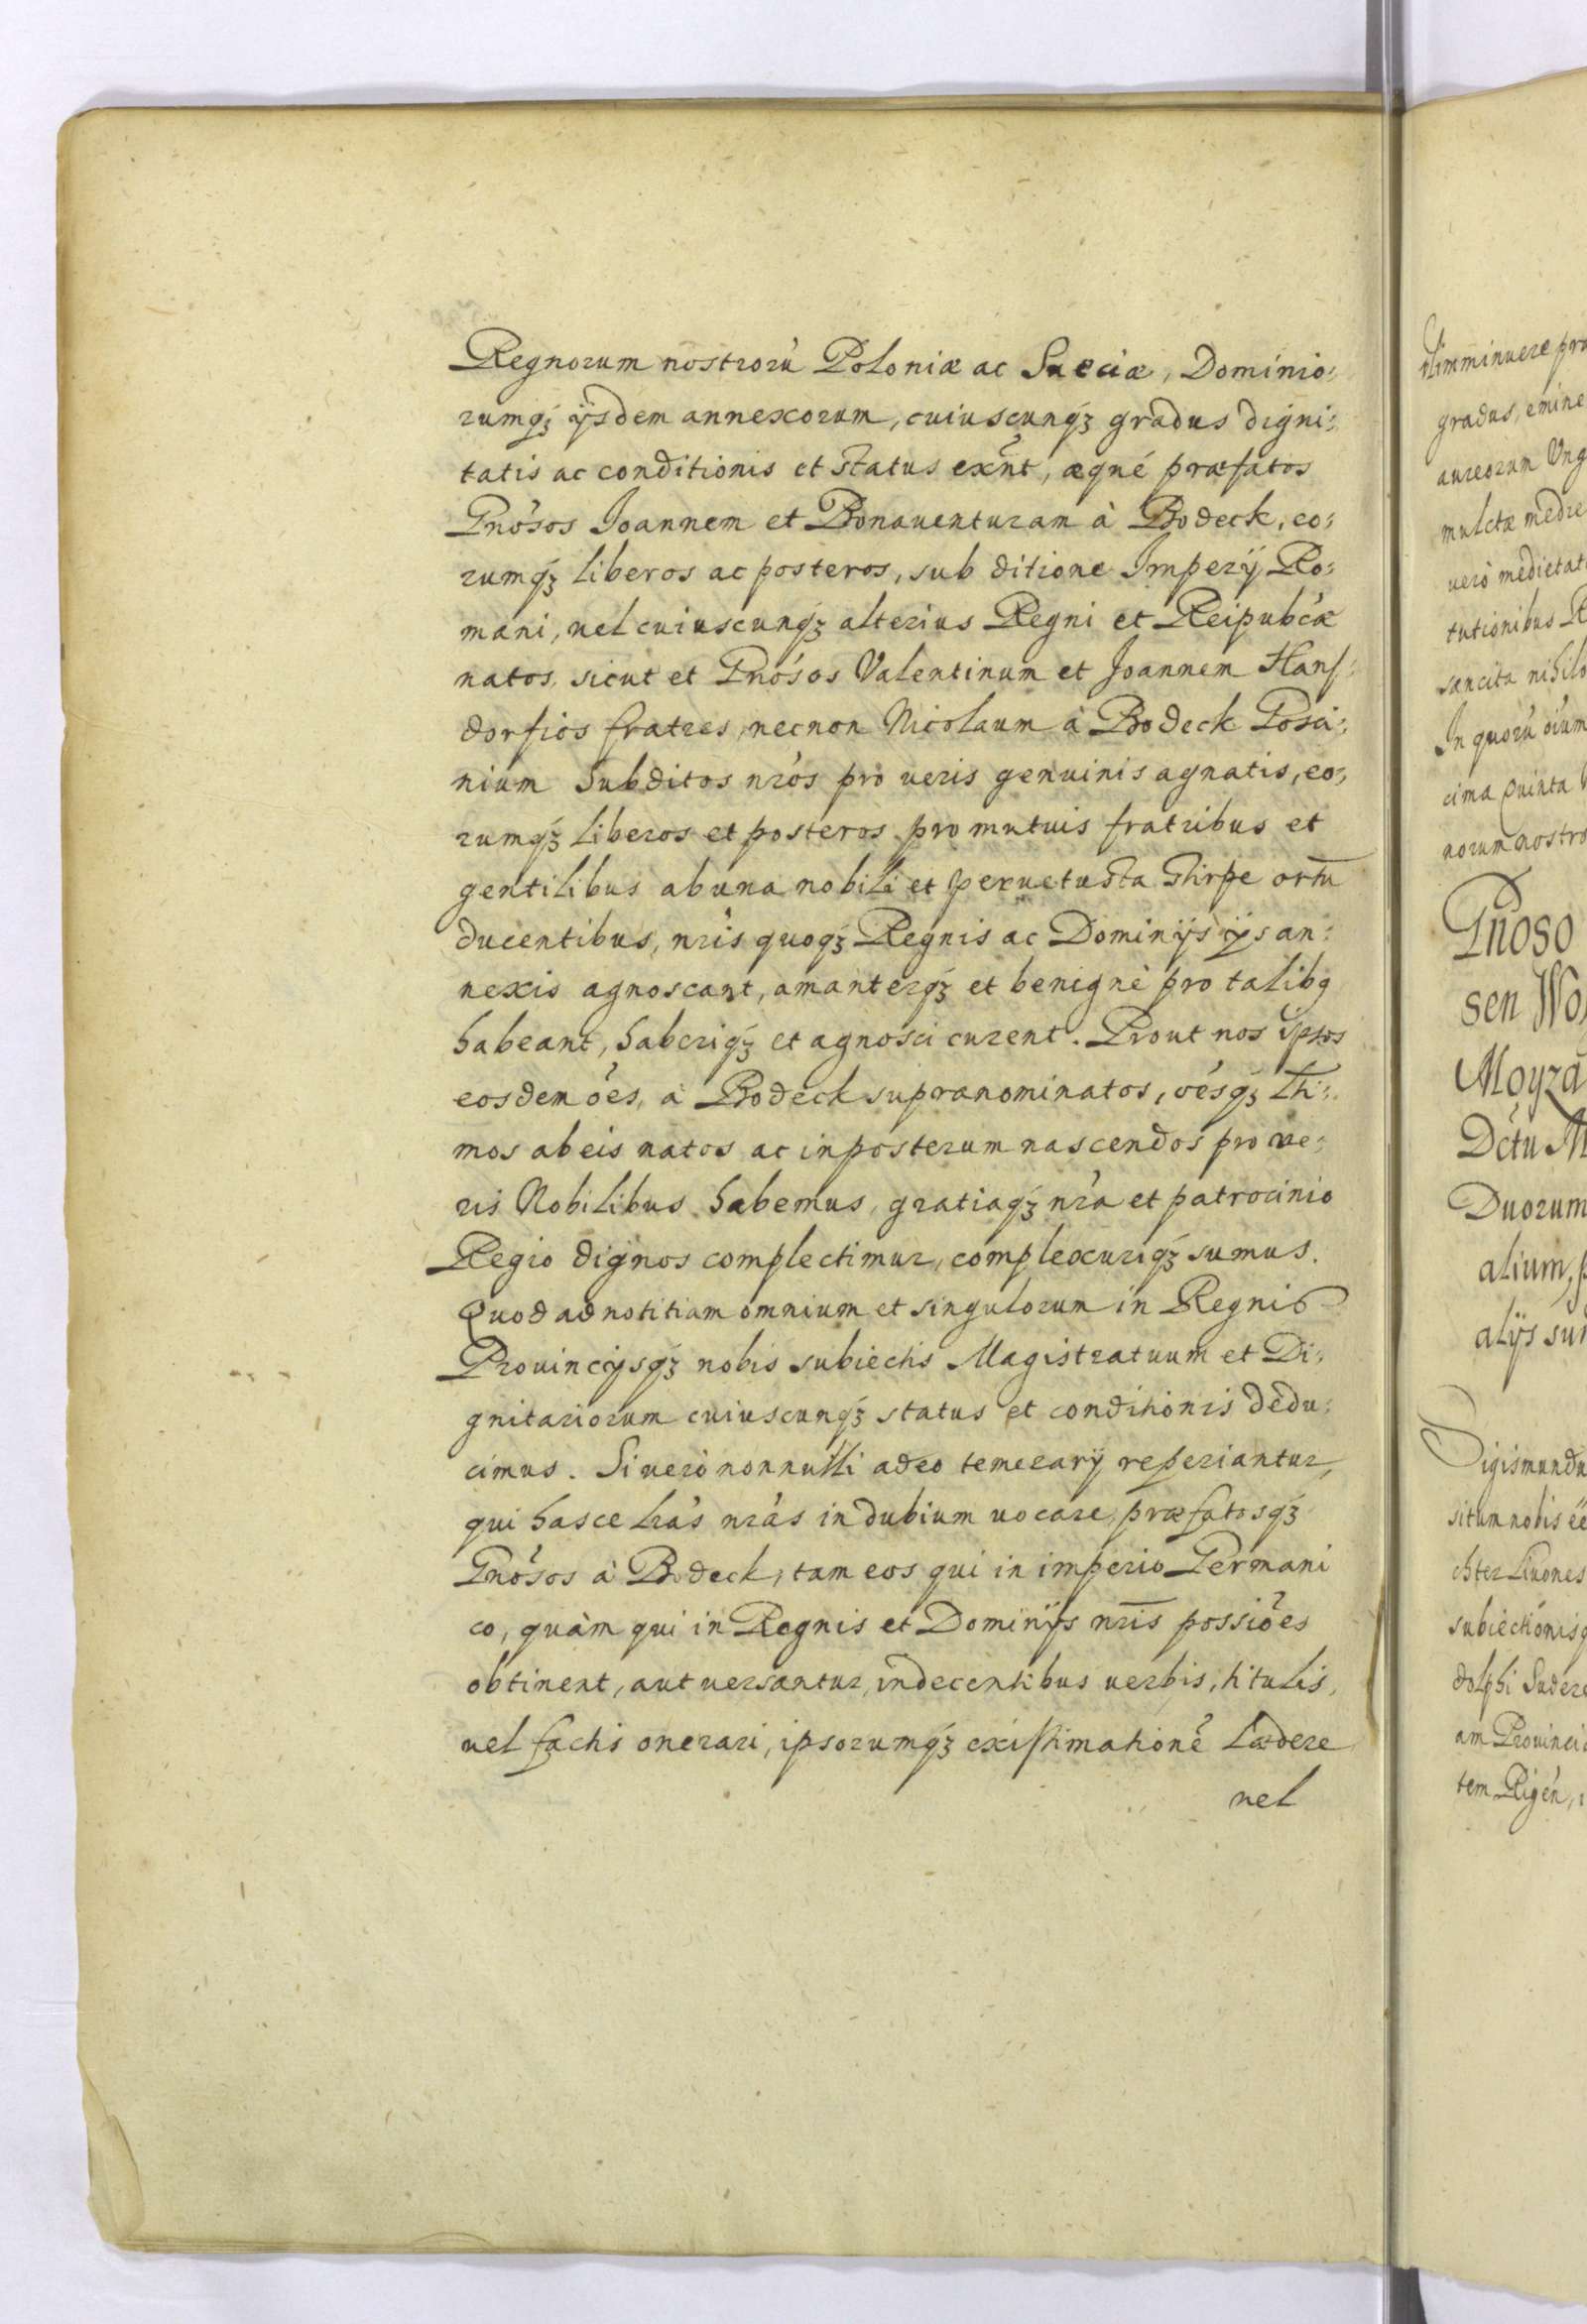 Regnorum nostrorũ Poloniæ ac Sueciæ, Dominio:
rumq́ꝫ ijsdem annexorum, cuiuscunq́ꝫ gradus digni:
tatis ac conditionis et status exñt, æqué præfatos
Gnósos Joannem et Bonauenturam à Bodeck, eo:
rumq́ꝫ liberos ac posteros, sub ditione Imperij Ro:
mani, uel cuiuscunq́ꝫ alterius Regni et Reipubćæ
natos, sicut et Gnósos Valentinum et Joannem Hans:
dorfios fratres, necnon Nicolaum à Bodeck Posci:
nium Subditos nrós pro ueris genuinis agnatis, eo:
rumq́ꝫ liberos et posteros pro mutuis fratribus et
gentilibus ab una nobili et peruetusta stirpe ortũ
ducentibus, nrís quoqꝫ Regnis ac Dominijs ijs an:
nexis agnoscant, amanterq́ꝫ et benignè pro talibꝯ
habeant, haberiq́ꝫ et agnosci curent. Prout nos ipsos
eosdem óes, à Bodeck supranominatos, óesq́ꝫ lti:
mos ab eis natos ac in posterum nascendos pro ue:
ris Nobilibus habemus, gratiaq́ꝫ nrá et patrocinio
Regio dignos complectimur, complexuriq́ꝫ sumus.
Quod ad notitiam omnium et singulorum in Regnis
Prouincijsq́ꝫ nobis subiectis Magistratuum et Di:
gnitariorum cuiuscunq́ꝫ status et conditionis dedu:
cimus. Si uerò nonnulli adeo temerarij reperiantur,
qui hasce lrás nrás in dubium uocare, præfatosq́ꝫ
Gnósos à Bodeck, tam eos qui in imperio Germani
co, quàm qui in Regnis et Dominijs nr̃is possiões
obtinent, aut uersantur, indecentibus uerbis, titulis,
uel factis onerari, ipsorumq́ꝫ existimationẽ lædere
uel
imminuere pra
gradus, emine
aureorum Ung
mulctæ medie
uerò medietat
tutionibus R
sancita nihilo
In quorũ óium
cima Quinta
norum nostro
Gnoso
sen Wo
Moyza
Dctu M
Duorum
alium, p
alijs sui
Sigismundu
situm nobis éé
chter Liuones
subiectionisq
dolphi Suder
am Prouinci
tem Rigeñ, i